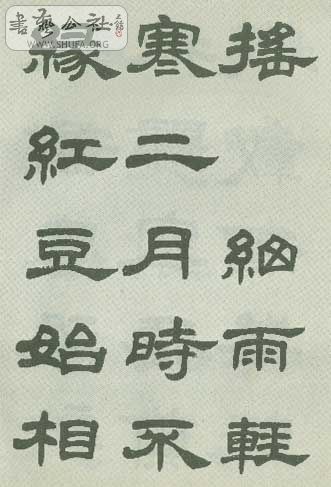 書藝公社
WWW.SHUFA.ORG
搖細雨輕
寒二月時不
緣紅豆始相